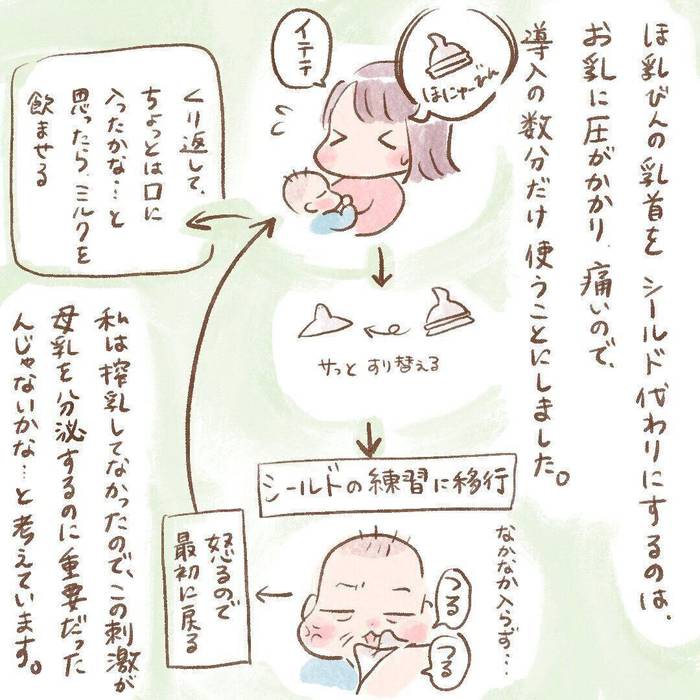 ほ乳びんの乳首を シールド代わりにするのは、
お乳に圧がかかり、痛いので、
導入の数分だけ 使うことにしました。
ほにゃーびん
イテテ
くり返して、
ちょっとは口に
入ったかな…と
思ったら、ミルクを
飲ませる
サッと すり替える
シールドの練習に移行
なかなか入らず…
つる
つる
怒るので
最初に戻る
私は搾乳してなかったので、この刺激が
母乳を分泌するのに重要だった
んじゃないかな…と 考えています。